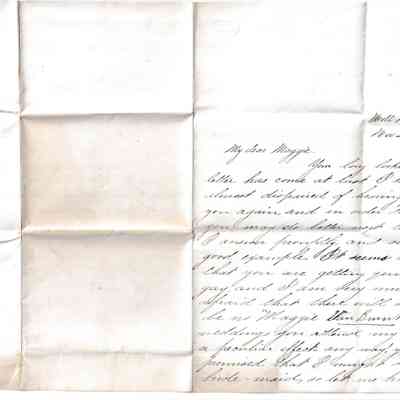 Nov
My dear Maggie
Your long looked
letter has come at last I
almost dispaired of hearing
you again and in order
you may do better next
I answer promptly and
good example. It seems
that you are getting
gay and I am very much
afraid that there will
be no Maggie Van
wedding you attend my
a peculiar effect any way,
promised that I might
bride-maid, so let me